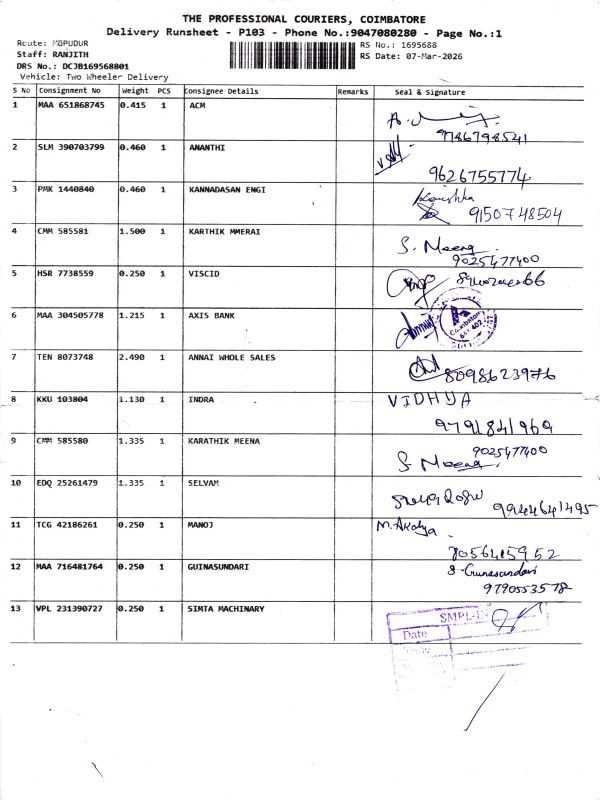 THE PROFESSIONAL COURIERS, COIMBATORE
Delivery Runsheet - P103 - Phone No.:9047080280 - Page No.:1
Route: MGPUDUR
Staff: RANJITH
DRS No.: DCJB169568801
Vehicle: Two Wheeler Delivery
RS No.: 1695688
RS Date: 07-Mar-2026
S No Consignment No Weight PCS Consignee Details Remarks Seal & Signature
1 MAA 651868745 0.415 1 ACM
9786798541
2 SLM 390703799 0.460 1 ANANTHI
9626755774
3 PMK 1440840 0.460 1 KANNADASAN ENGI Kanishka
9150748504
4 CMM 585581 1.500 1 KARTHIK MMERAI S. Meena
9025477400
5 HSR 7738559 0.250 1 VISCID
6 MAA 304505778 1.215 1 AXIS BANK
Coimbatore
641 402
7 TEN 8073748 2.490 1 ANNAI WHOLE SALES
8098623976
8 KKU 103804 1.130 1 INDRA VIDHYA
9791841969
9 CMM 585580 1.335 1 KARATHIK MEENA 9025477400
S. Meena
10 EDQ 25261479 1.335 1 SELVAM
9944641495
11 TCG 42186261 0.250 1 MANOJ M. Akalya
8056415952
12 MAA 716481764 0.250 1 GUINASUNDARI S. Gunasundari
9790553578
13 VPL 231390727 0.250 1 SIMTA MACHINARY
SMPL-
Date